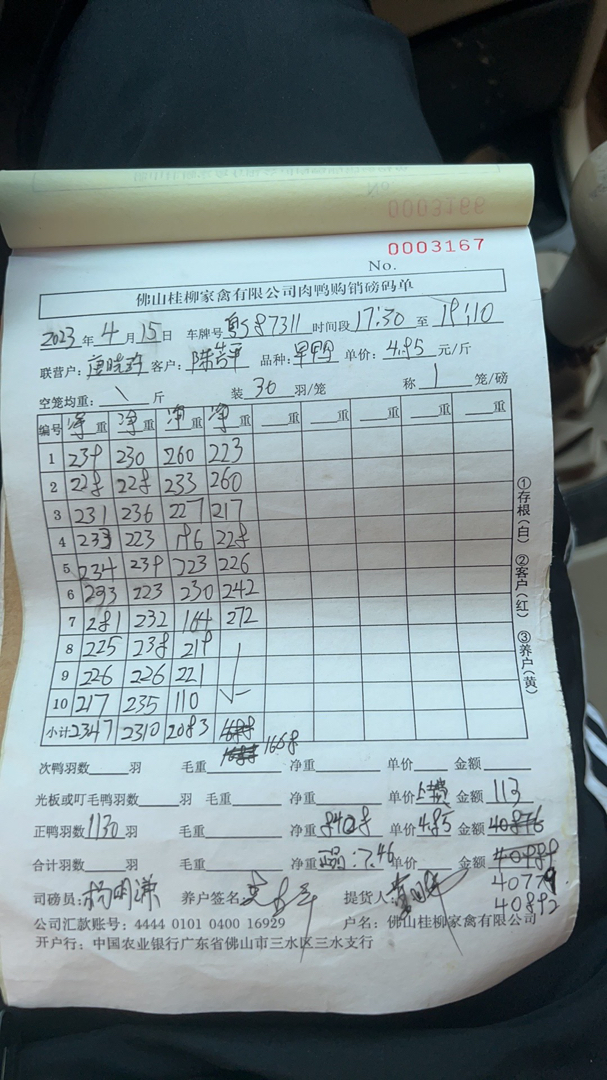 0003166
0003167
No.
佛山桂柳家禽有限公司肉鸭购销磅码单
2023年4月15日 车牌号粤S87311 时间段17:30至18:10
联营户: 客户:陈 品种: 单价:4.85元/斤
空笼均重:\斤 装30羽/笼 称1笼/磅
编号 净重 净重 净重 净重 重 重 重 重
1 238 230 260 223
2 228 228 233 260
3 231 236 227 217
4 233 223 186 228
5 234 239 223 226
6 233 223 230 242
7 281 232 164 272
8 225 238 219
9 226 226 221
10 217 235 110
小计 2347 2310 2083
1668
①存根(白) ②客户(红) ③养户(黄)
次鸭羽数 羽 毛重 净重 单价 金额
光板或叮毛鸭羽数 羽 毛重 净重 单价 金额113
正鸭羽数1130羽 毛重 净重8408 单价4.85 金额40876
合计羽数 羽 毛重 净重 :7.46 单价 金额
40779
40892
司磅员:杨明谦 养户签名: 提货人:
公司汇款账号:4444 0101 0400 16929 户名:佛山桂柳家禽有限公司
开户行:中国农业银行广东省佛山市三水区三水支行